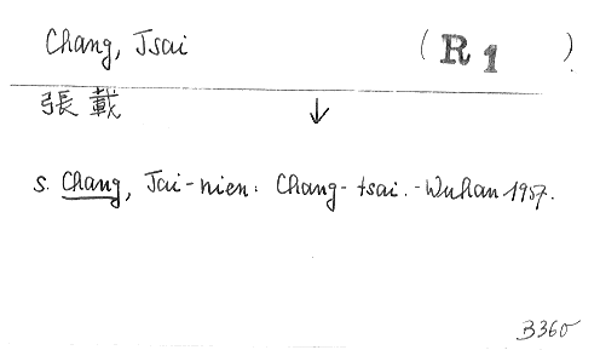 Chang, Tsai (R 1)
張載 ↓
s. Chang, Tai-nien: Chang-tsai.-Wuhan 1957.
3360